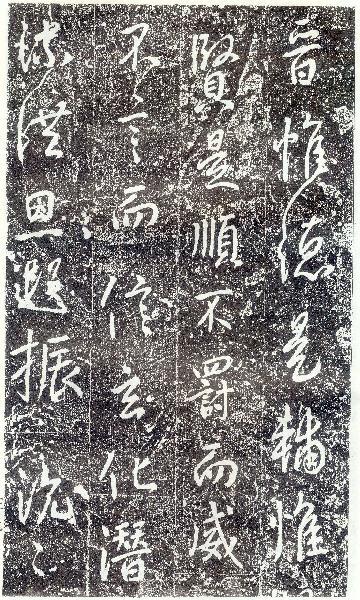 晋惟德是輔惟
賢是順不罰而威
不言而信玄化潛
流洪恩遐振沈〻